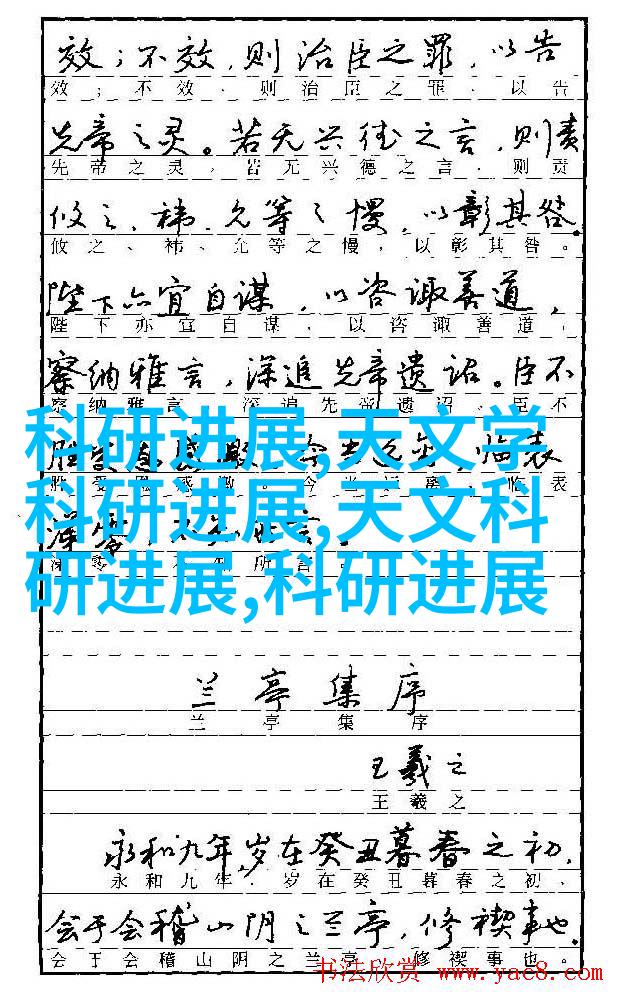 效；不效，则治臣之罪，以告
效；不效、则治臣之罪、以告
先帝之灵。若无兴德之言，则责
先帝之灵，若无兴德之言、则责
攸之、祎、允等之慢，以彰其咎。
攸之、祎、允等之慢，以彰其咎。
陛下亦宜自谋，以咨诹善道，
陛下亦宜自谋、以咨诹善道，
察纳雅言，深追先帝遗诏。臣不
察纳雅言、深追先帝遗诏、臣不
科研进展,天文学
科研进展,天文科
研进展,科研进展
临表
临表
所言。
兰亭集序
兰亭集序
王羲之
王羲之
永和九年,岁在癸丑暮春之初,
永和九年.岁在癸丑暮春之初、
会于会稽山阴之兰亭，修禊事也。
会于会稽山阴之兰亭 修禊事也。
书法欣赏 www.yac8.com